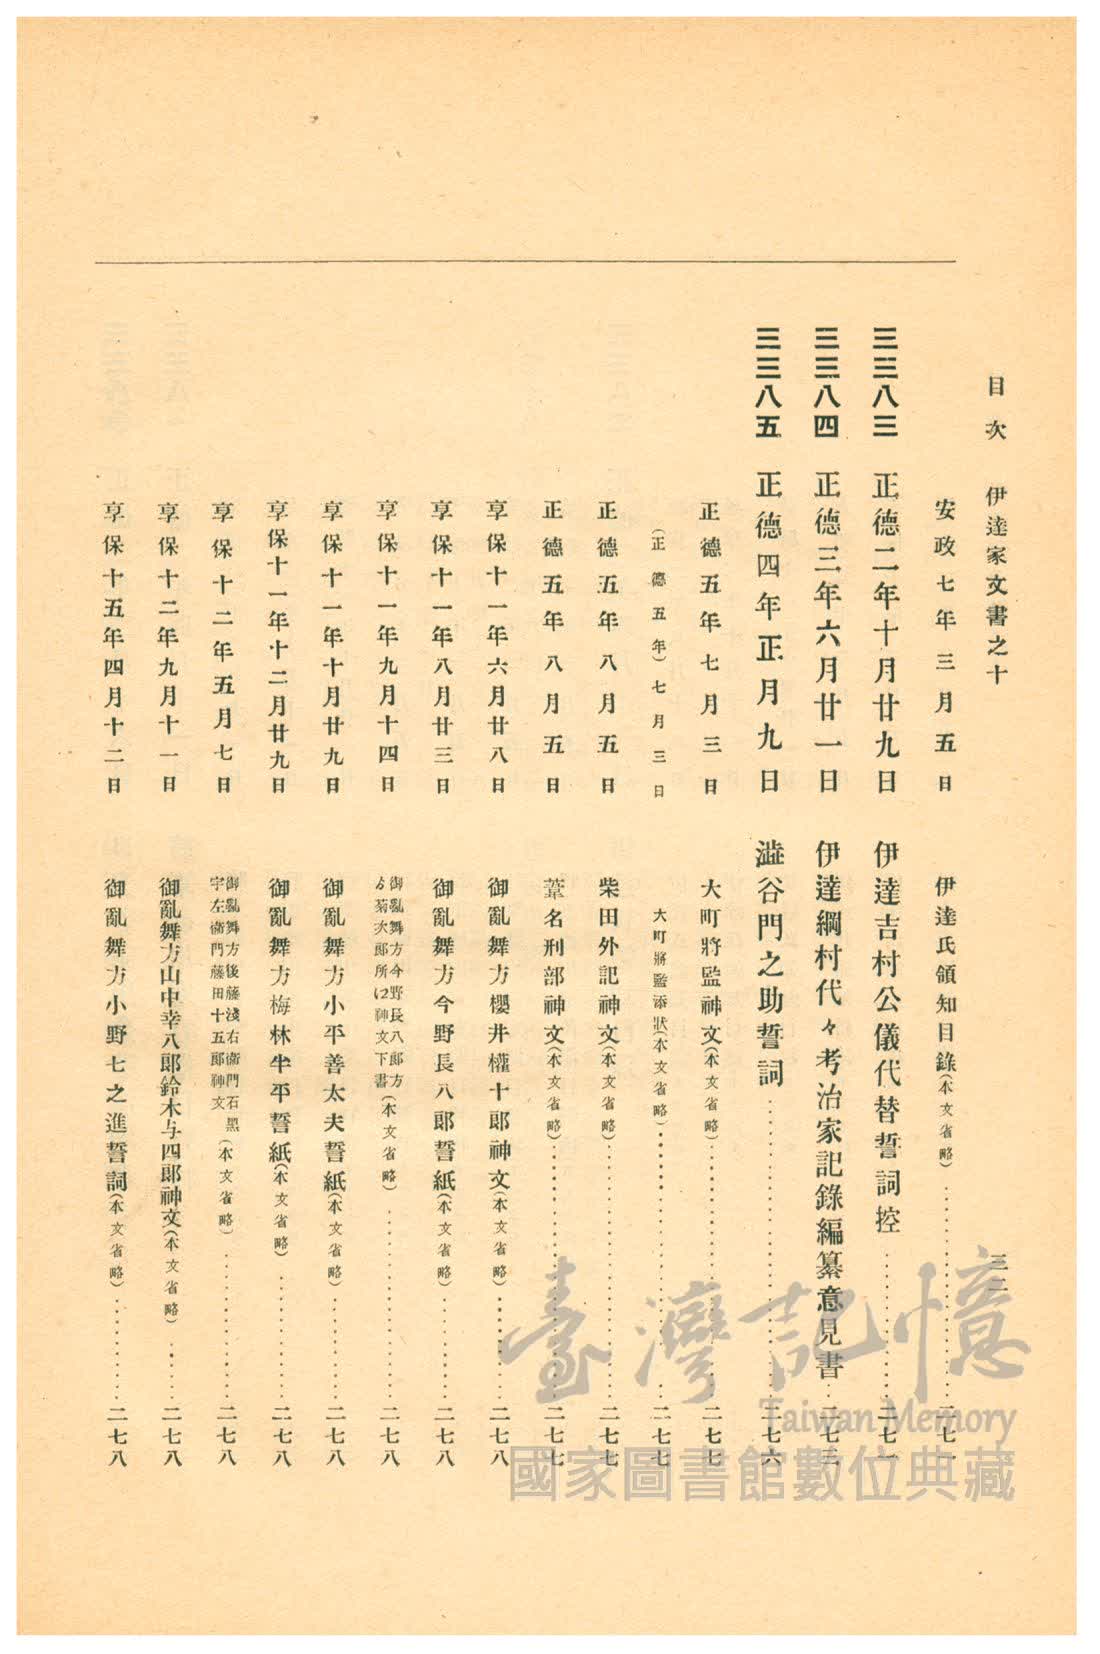 目次　伊達家文書之十　三二
安政七年三月五日　伊達氏領知目錄(本文省略)………二七一
三三八三　正德二年十月廿九日　伊達吉村公儀代替誓詞控………二七一
三三八四　正德三年六月廿一日　伊達綱村代々考治家記錄編纂意見書…二七三
三三八五　正德四年正月九日　澁谷門之助誓詞………二七六
正德五年七月三日　大町將監神文(本文省略)………二七七
(正德五年)七月三日　大町將監添狀(本文省略)………二七七
正德五年八月五日　柴田外記神文(本文省略)………二七七
正德五年八月五日　葦名刑部神文(本文省略)………二七七
享保十一年六月廿八日　御亂舞方櫻井權十郎神文(本文省略)………二七八
享保十一年八月廿三日　御亂舞方今野長八郎誓紙(本文省略)………二七八
享保十一年九月十四日　御亂舞方今野長八郎方
ゟ菊次郎所に神文下書(本文省略)………二七八
享保十一年十月廿九日　御亂舞方小平善太夫誓紙(本文省略)………二七八
享保十一年十二月廿九日　御亂舞方梅林半平誓紙(本文省略)………二七八
享保十二年五月七日　御亂舞方後藤淺右衞門石黑
宇左衞門藤田十五郎神文(本文省略)………二七八
享保十二年九月十一日　御亂舞方山中幸八郎鈴木与四郎神文(本文省略)……二七八
享保十五年四月十二日　御亂舞方小野七之進誓詞(本文省略)………二七八
臺灣記憶
Taiwan Memory
國家圖書館數位典藏